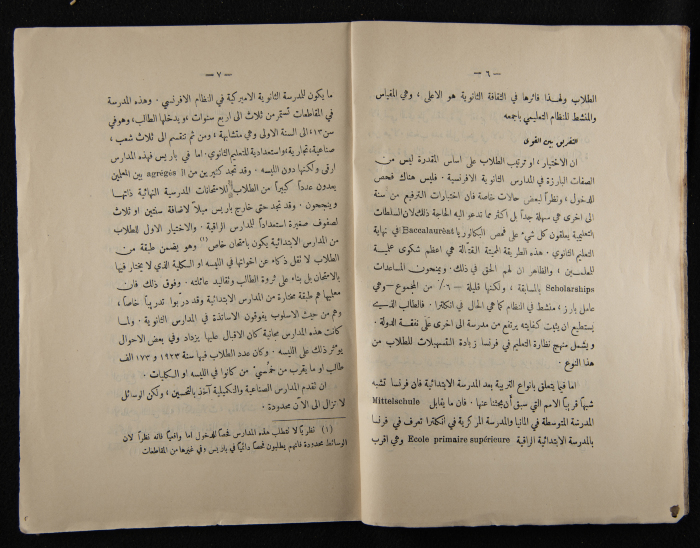 — ٦ —
الطلاب ولهذا فائزها في الثقافة الثانوية هو الاعلى ، وهي المقياس
والمنشط للنظام التعليمي باجمعه
التفريق بين القوى
ان الاختبار ، او ترتيب الطلاب على اساس المقدرة ليس من
الصفات البارزة في المدارس الثانوية الافرنسية . فليس هناك فحص
للدخول ، ونظراً لبعض حالات خاصة فان اختبارات الترفيع من سنة
الى اخرى هي سهلة جداً بل اكثر مما تدعو اليه الحاجة ذلك لان السلطات
التعليمية يعلقون كل شيء على فحص البكالوريا Baccalauréat في نهاية
التعليم الثانوي . هذه الطريقة المميتة القتالة هي اعظم شكوى عملية
للمعلمين ، والظاهر ان لهم الحق في ذلك . ويمنحون المساعدات
Scholarships بالمسابقة ، ولكنها قليلة — ٦٪ من المجموع — وهي
عامل بارز ، منشط في النظام كما هي الحال في انكلترا . فالطالب الذي
يستطيع ان يثبت كفايته يرتفع من مدرسة الى اخرى على نفقة الدولة .
ويشمل منهج نظارة التعليم في فرنسا زيادة التسهيلات للطلاب من
هذا النوع .
اما فيما يتعلق بانواع التربية بعد المدرسة الابتدائية فان فرنسا تشبه
شبهاً قريباً الامم التي سبق أن بحثنا عنها . فان ما يقابل Mittelschule
المدرسة المتوسطة في المانيا والمدرسة المركزية في انكلترا تعرف في فرنسا
بالمدرسة الابتدائية الراقية Ecole primaire supérieure وهي اقرب
— ٧ —
ما يكون للمدرسة الثانوية الاميركية في النظام الافرنسي . وهذه المدرسة
في المقاطعات تستمر من ثلاث الى اربع سنوات ، ويدخلها الطالب ، وهو في
سن ١٣ ، الى السنة الاولى وهي متشابهة ، ومن ثم تنقسم الى ثلاث شعب ،
صناعية ، تجارية ، واستعدادية للتعليم الثانوي . اما في باريس فهذه المدارس
ارقى ولكنها دون الليسه . وقد تجد كثيرين من الـ agrégés بين المعلمين
يعدون عدداً كبيراً من الطلاب للامتحانات المدرسية النهائية ذاتها
وينجحون . وقد تجد حتى خارج باريس ميلاً لاضافة سنتين او ثلاث
لصفوف صغيرة استعداداً للمدارس الراقية . والاختبار الاول للطلاب
من المدارس الابتدائية يكون بامتحان خاص (١) وهو يضمن طبقة من
الطلاب لا تقل ذكاء عن اخواتها في الليسه او الكلية الذي لا يختار فيها
بالامتحان بل بناء على ثروة الطالب وتقاليد عائلته . وفوق ذلك فان
معلميها هم طبقة مختارة من المدارس الابتدائية وقد دربوا تدريباً خاصاً ،
وهم من حيث الاسلوب يفوقون الاساتذة في المدارس الثانوية . ولما
كانت هذه المدارس مجانية كان الاقبال عليها يزداد وفي بعض الاحوال
يؤثر ذلك على الليسه . وكان عدد الطلاب فيها سنة ١٩٢٣ و ١٧٣ الف
طالب او ما يقرب من خمسي من كانوا في الليسه او الكليات .
ان تقدم المدارس الصناعية والتكميلية آخذ بالتحسين ، ولكن الوسائل
لا تزال الى الآن محدودة .
(١) نظرياً لا تتطلب هذه المدارس فحصاً للدخول اما واقعياً فانه نظراً لان
الوسائط محدودة فانهم يطلبون فحصاً دائماً في باريس وفي غيرها من المقاطعات